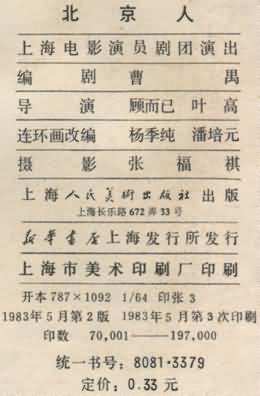 北京人
上海电影演员剧团演出
编 剧 曹 禺
导 演 顾而已 叶 高
连环画改编 杨季纯 潘培元
摄 影 张 福 祺
上海人民美術出版社出版
上海长乐路672弄33号
新华書店上海发行所发行
上海市美术印刷厂印刷
开本787×1092 1/64 印张3
1983年5月第2版 1983年5月第3次印刷
印数 70,001——197,000
统一书号:8081·3379
定价:0.33元